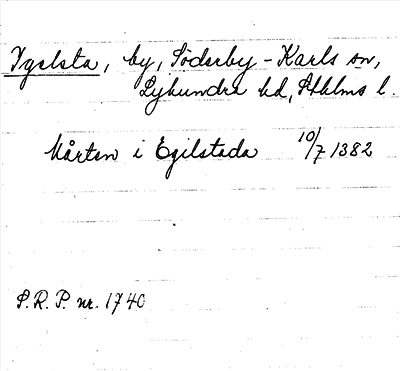 Igelsta, by, Söderby-Karls sn,
Lyhundra hd, Sthlms l.
Mårten i Egilstada 10/7 1382
S.R.P. nr. 1740